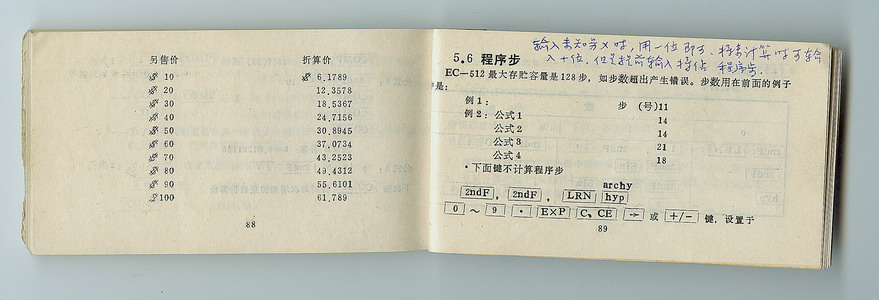 另售价 折算价
$ 10 $ 6,1789
$ 20 12,3578
$ 30 18,5367
$ 40 24,7156
$ 50 30,8945
$ 60 37,0734
$ 70 43,2523
$ 80 49,4312
$ 90 55,6101
$100 61,789
88
输入未知为X时,用一位即可、
入十位,但是提前输入
程序步.
5.6 程序步
EC—512最大存贮容量是128步,如步数超出产生错误。步数用在前面的例子
是:
例1: 步 (号)11
例2:公式1 14
公式2 14
公式3 21
公式4 18
·下面键不计算程序步
archy
2ndF , 2ndF , LRN hyp
0 ~ 9 · EXP C、CE → 或 +/− 键,设置于
89